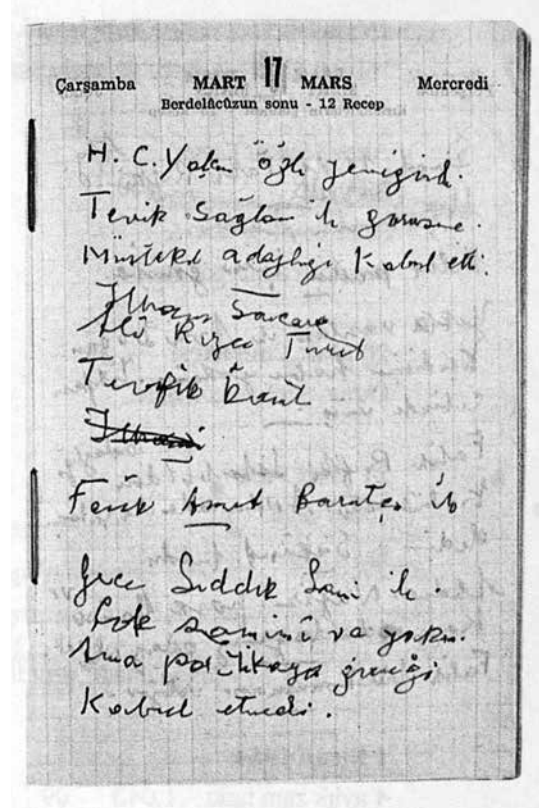 Çarşamba MART 17 MARS Mercredi
Berdelâcûzun sonu - 12 Recep
H. C. Yalçın öğle yemeğinde.
Tevfik Sağlam ile görüşme.
Müstakil adaylığı kabul etti.
İlham
Ali Rıza Türel
Tevfik
İlhami
Ferik Ahmet
Gece Sıddık Sami ile.
Çok samimî ve yakın.
Ama politikaya girmeği
Kabul etmedi.